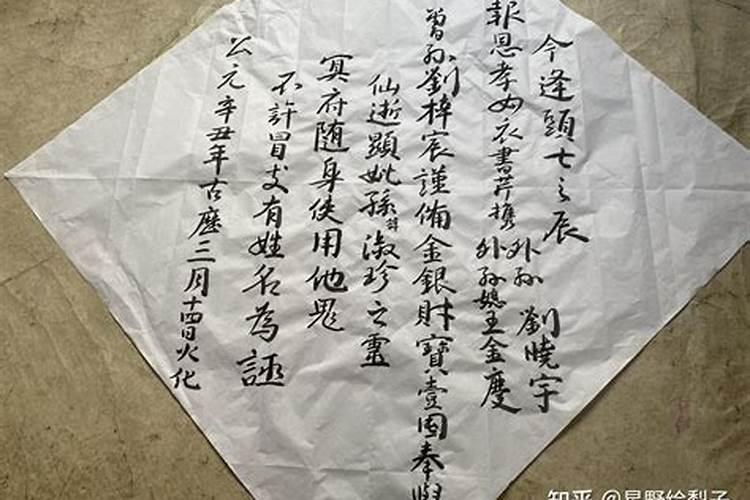 今逢頭七之辰
報恩孝女衣書芹携
外孙 劉曉宇
外孙媳王金慶
曾孙劉梓宸謹備金銀財寶壹固奉與
仙逝顯妣孫諱淑珍之靈
冥府随身使用他鬼
不許冒支有姓名為
公元辛丑年古歷三月十四日火化
知乎 @星野绘梨子